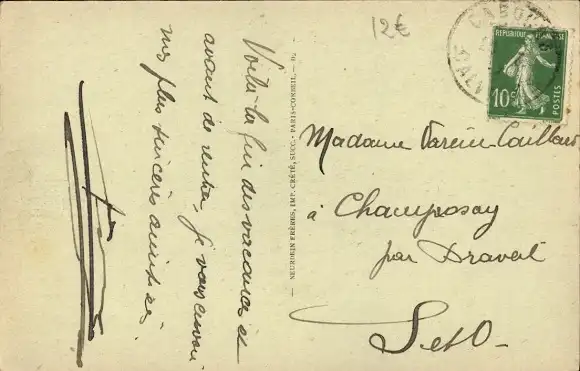 12€
CABOURG
REPUBLIQUE FRANÇAISE
10c
POSTES
Voilà la fin des vacances et
avant de rentrer, je vous envoie
mes plus sincères amitiés.
NEURDEIN FRÈRES, IMP. CRÉTÉ, SUCC. - PARIS-CORBEIL
Madame Caillard
à Champrosay
par Draveil
S et O.